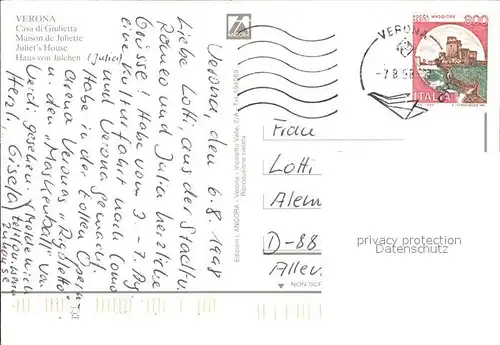 VERONA
Casa di Giulietta
Maison de Juliette
Juliet's House
Haus von Julchen (Julia)
Verona, den 6.8.1998
Liebe Lotti, aus der Stadt v.
Romeo und Julia herzliche
Grüsse! Habe vom 3. - 7. Aug
eine Kulturfahrt nach Como
und Verona gemacht.
Habe in der tollen Opern-
arena Veronas "Rigoletto"
u. den "Maskenball" von
Verdi gesehen. (Melde mich
Herzl. Gisela telefonisch
zuhause
Edizioni L'ANGORA - Verona - Vicoletto Valle, 2/A - Tel. 594969
Riproduzione vietata
VERONA
-7.8.98
ROCCA MAGGIORE
ASSISI
800
ITALIA
Frau
Lotti
Alem
D-88
Allev
privacy protection
Datenschutz
NON SCR